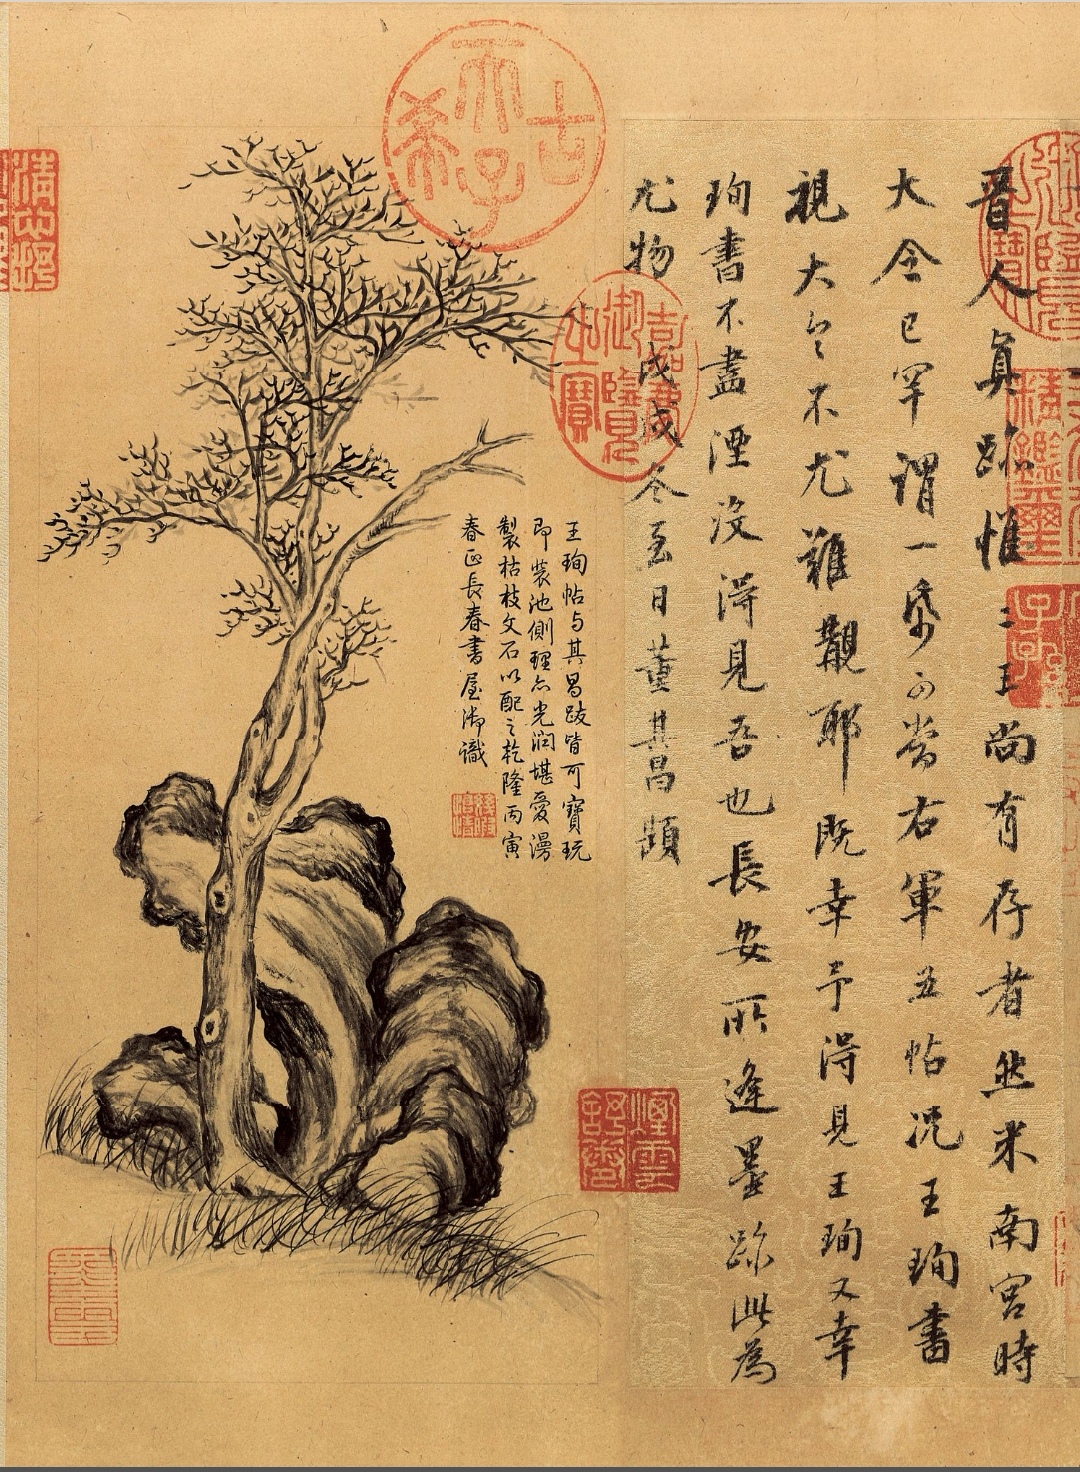 晉人真跡惟二王尚有存者然米南宮時
大令已罕謂一帋可當右軍五帖況王珣書
視大令不尤難覯耶既幸予得見王珣又幸
珣書不盡湮没得見吾也長安所逢墨跡此為
尤物 戊戌冬至日董其昌題
王珣帖与其昌跋皆可寶玩
即裝池側理亦光潤堪愛漫
製枯枝文石以配之乾隆丙寅
春正長春書屋御識
古希天子
嘉慶御覽之寶